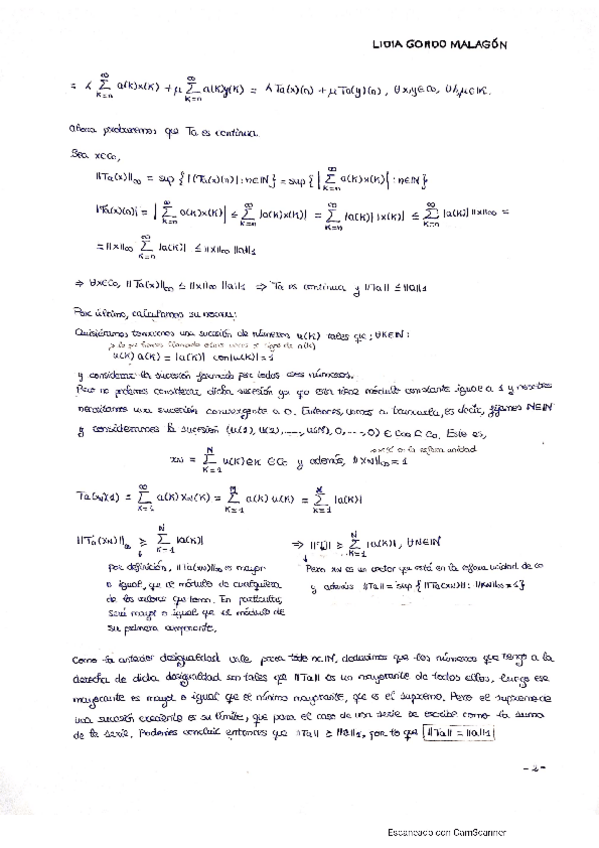 LIDIA GORDO MALAGÓN
= λ ∑_{k=n}^{∞} a(k)x(k) + μ ∑_{k=n}^{∞} a(k)y(k) = λ Ta(x)(n) + μ Ta(y)(n), ∀x,y∈C₀, ∀λ,μ∈K.
Ahora probaremos que Ta es continua.
Sea x∈C₀,
||Ta(x)||∞ = sup { |(Ta(x)(n)| : n∈ℕ } = sup { | ∑_{k=n}^{∞} a(k)x(k) | : n∈ℕ }
|Ta(x)(n)| = | ∑_{k=n}^{∞} a(k)x(k) | ≤ ∑_{k=n}^{∞} |a(k)x(k)| = ∑_{k=n}^{∞} |a(k)| |x(k)| ≤ ∑_{k=n}^{∞} |a(k)| ||x||∞ =
= ||x||∞ ∑_{k=n}^{∞} |a(k)| ≤ ||x||∞ ||a||₁
⇒ ∀x∈C₀, ||Ta(x)||∞ ≤ ||x||∞ ||a||₁ ⇒ Ta es continua y ||Ta|| ≤ ||a||₁
Por último, calculamos su norma:
Quisiéramos tomarnos una sucesión de números u(k) tales que, ∀k∈ℕ:
u(k) a(k) = |a(k)| con |u(k)| = 1
y considerar la sucesión formada por todos esos números.
Pero no podemos considerar dicha sucesión ya que esta tiene módulo constante igual a 1 y nosotros
necesitamos una sucesión convergente a 0. Entonces, vamos a truncarla, es decir, fijamos N∈ℕ
y consideramos la sucesión (u(1), u(2), ...., u(N), 0, ..., 0) ∈ C₀₀ ⊆ C₀. Esto es,
está en la esfera unidad
x_N = ∑_{k=1}^{N} u(k)e_k ∈ C₀ y además, ||x_N||∞ = 1
Ta(x_N)(1) = ∑_{k=1}^{∞} a(k) x_N(k) = ∑_{k=1}^{N} a(k) u(k) = ∑_{k=1}^{N} |a(k)|
||Ta(x_N)||∞ ≥ ∑_{k=1}^{N} |a(k)| ⇒ ||Ta|| ≥ ∑_{k=1}^{N} |a(k)|, ∀N∈ℕ
por definición, ||Ta(x_N)||∞ es mayor
o igual, que el módulo de cualquiera
de los valores que toma. En particular,
será mayor o igual que el módulo de
su primera componente.
Pero x_N es un vector que está en la esfera unidad de C₀
y además ||Ta|| = sup { ||Ta(x_N)|| : ||x_N||∞ = 1 }
Como la anterior desigualdad vale para todo n∈ℕ, deducimos que los números que tengo a la
derecha de dicha desigualdad son tales que ||Ta|| es un mayorante de todos ellos, luego ese
mayorante es mayor o igual que el mínimo mayorante, que es el supremo. Pero el supremo de
una sucesión creciente es su límite, que para el caso de una serie se escribe como la suma
de la serie. Podemos concluir entonces que ||Ta|| ≥ ||a||₁, por lo que ||Ta|| = ||a||₁
-2-
Escaneado con CamScanner